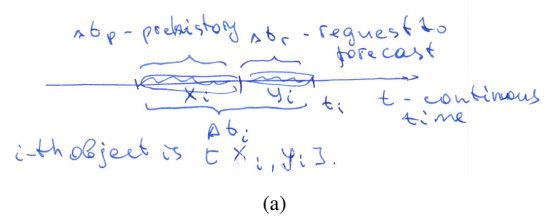 Δt_p - prehistory Δt_r - request to
forecast
x_i y_i t_i t - continous
time
Δt_i
i-th object is [x_i, y_i].
(a)